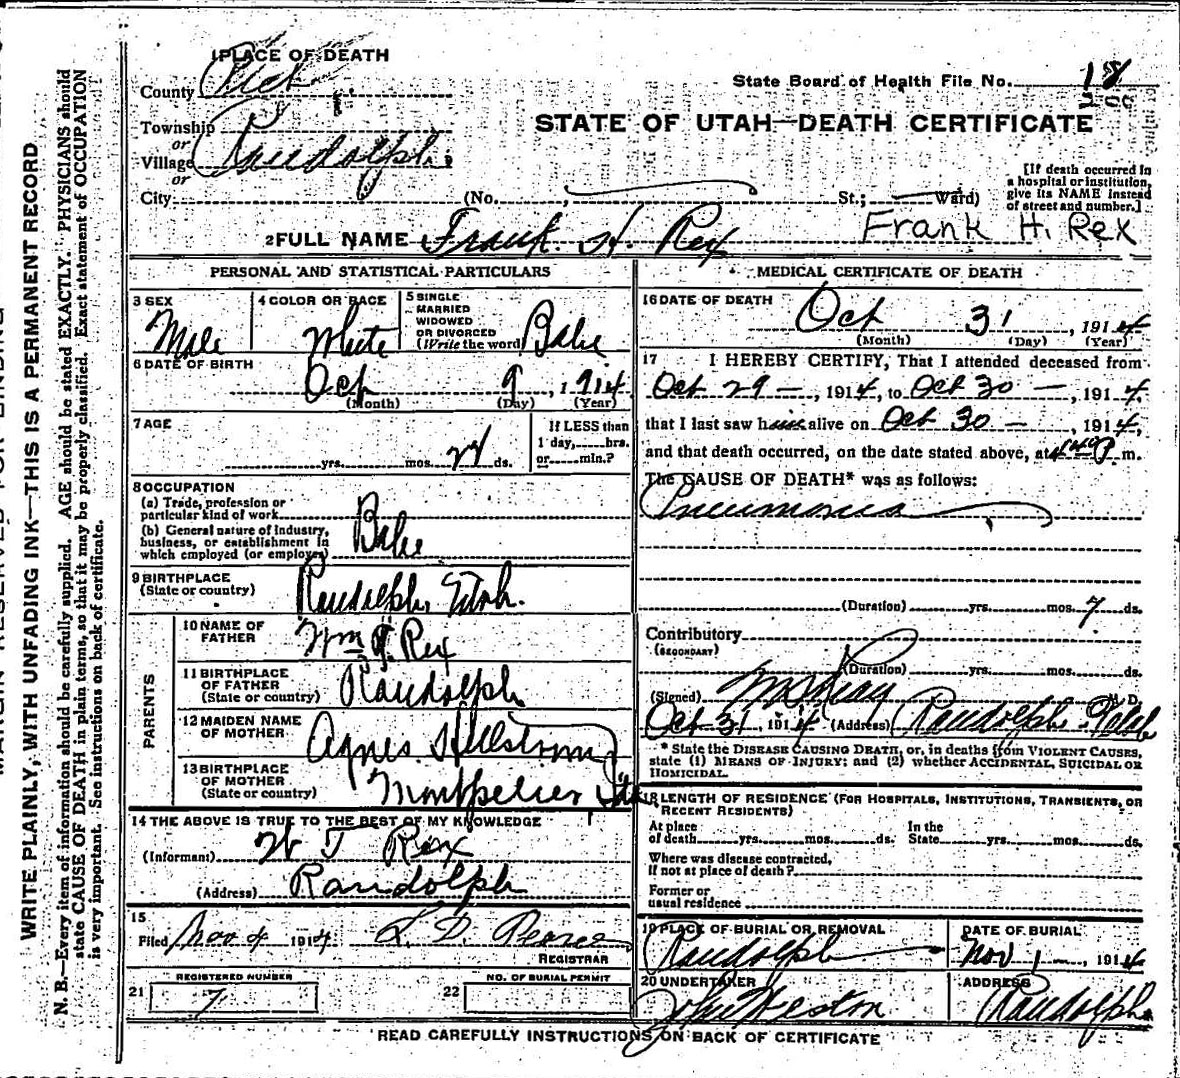 WRITE PLAINLY, WITH UNFADING INK—THIS IS A PERMANENT RECORD
N. B.—Every item of information should be carefully supplied. AGE should be stated EXACTLY. PHYSICIANS should
state CAUSE OF DEATH in plain terms, so that it may be properly classified. Exact statement of OCCUPATION
is very important. See instructions on back of certificate.
1 PLACE OF DEATH
County Rich
State Board of Health File No. 18
Township
or
Village Randolph
or
City
STATE OF UTAH—DEATH CERTIFICATE
(No. St.; Ward)
[If death occurred in
a hospital or institution,
give its NAME instead
of street and number.]
2 FULL NAME Frank. H. Rex Frank H. Rex
PERSONAL AND STATISTICAL PARTICULARS
3 SEX Male
4 COLOR OR RACE White
5 SINGLE
MARRIED
WIDOWED
OR DIVORCED
(Write the word) Babe
6 DATE OF BIRTH
Oct 9, 1914
(Month) (Day) (Year)
7 AGE
yrs. mos. 22 ds.
If LESS than
1 day, hrs.
or min.?
8 OCCUPATION
(a) Trade, profession or
particular kind of work
(b) General nature of industry,
business, or establishment in
which employed (or employer) Babe
9 BIRTHPLACE
(State or country) Randolph, Utah.
PARENTS
10 NAME OF
FATHER Wm T. Rex
11 BIRTHPLACE
OF FATHER
(State or country) Randolph
12 MAIDEN NAME
OF MOTHER Agnes Hellstrom
13 BIRTHPLACE
OF MOTHER
(State or country) Montpelier, Ida
14 THE ABOVE IS TRUE TO THE BEST OF MY KNOWLEDGE
(Informant) W T Rex
(Address) Randolph
15
Filed Nov 4 1914 L. D. Pearce
REGISTRAR
REGISTERED NUMBER
21 7
NO. OF BURIAL PERMIT
22
MEDICAL CERTIFICATE OF DEATH
16 DATE OF DEATH
Oct 31, 1914
(Month) (Day) (Year)
17 I HEREBY CERTIFY, That I attended deceased from
Oct 29 —, 1914, to Oct 30 —, 1914.
that I last saw him alive on Oct 30 —, 1914,
and that death occurred, on the date stated above, at m.
The CAUSE OF DEATH* was as follows:
Pneumonia
(Duration) yrs. mos. 7 ds.
Contributory
(SECONDARY)
(Duration) yrs. mos. ds.
(Signed) M. D.
Oct 31, 1914 (Address) Randolph Utah
* State the DISEASE CAUSING DEATH, or, in deaths from VIOLENT CAUSES,
state (1) MEANS OF INJURY; and (2) whether ACCIDENTAL, SUICIDAL OR
HOMICIDAL.
18 LENGTH OF RESIDENCE (FOR HOSPITALS, INSTITUTIONS, TRANSIENTS, OR
RECENT RESIDENTS)
At place
of death yrs. mos. ds.
In the
State yrs. mos. ds.
Where was disease contracted,
if not at place of death?
Former or
usual residence
19 PLACE OF BURIAL OR REMOVAL
Randolph
DATE OF BURIAL
Nov 1 —, 1914
20 UNDERTAKER
John Weston
ADDRESS
Randolph
READ CAREFULLY INSTRUCTIONS ON BACK OF CERTIFICATE